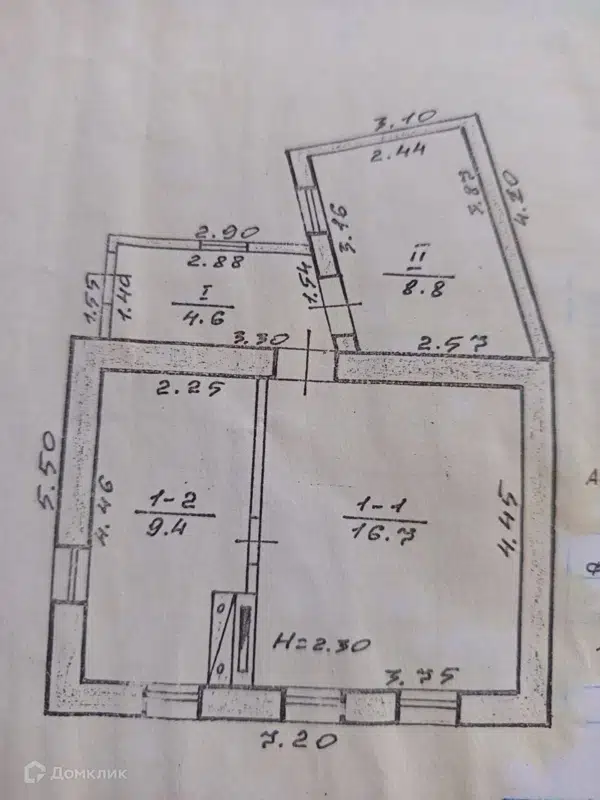 3.10
2.44
3.87
4.20
3.16
II
8.8
2.90
2.88
1.55
1.40
I
4.6
1.54
3.30
2.57
2.25
5.50
4.46
1-2
9.4
1-1
16.7
4.45
H=2.30
3.75
7.20
А
Домклик